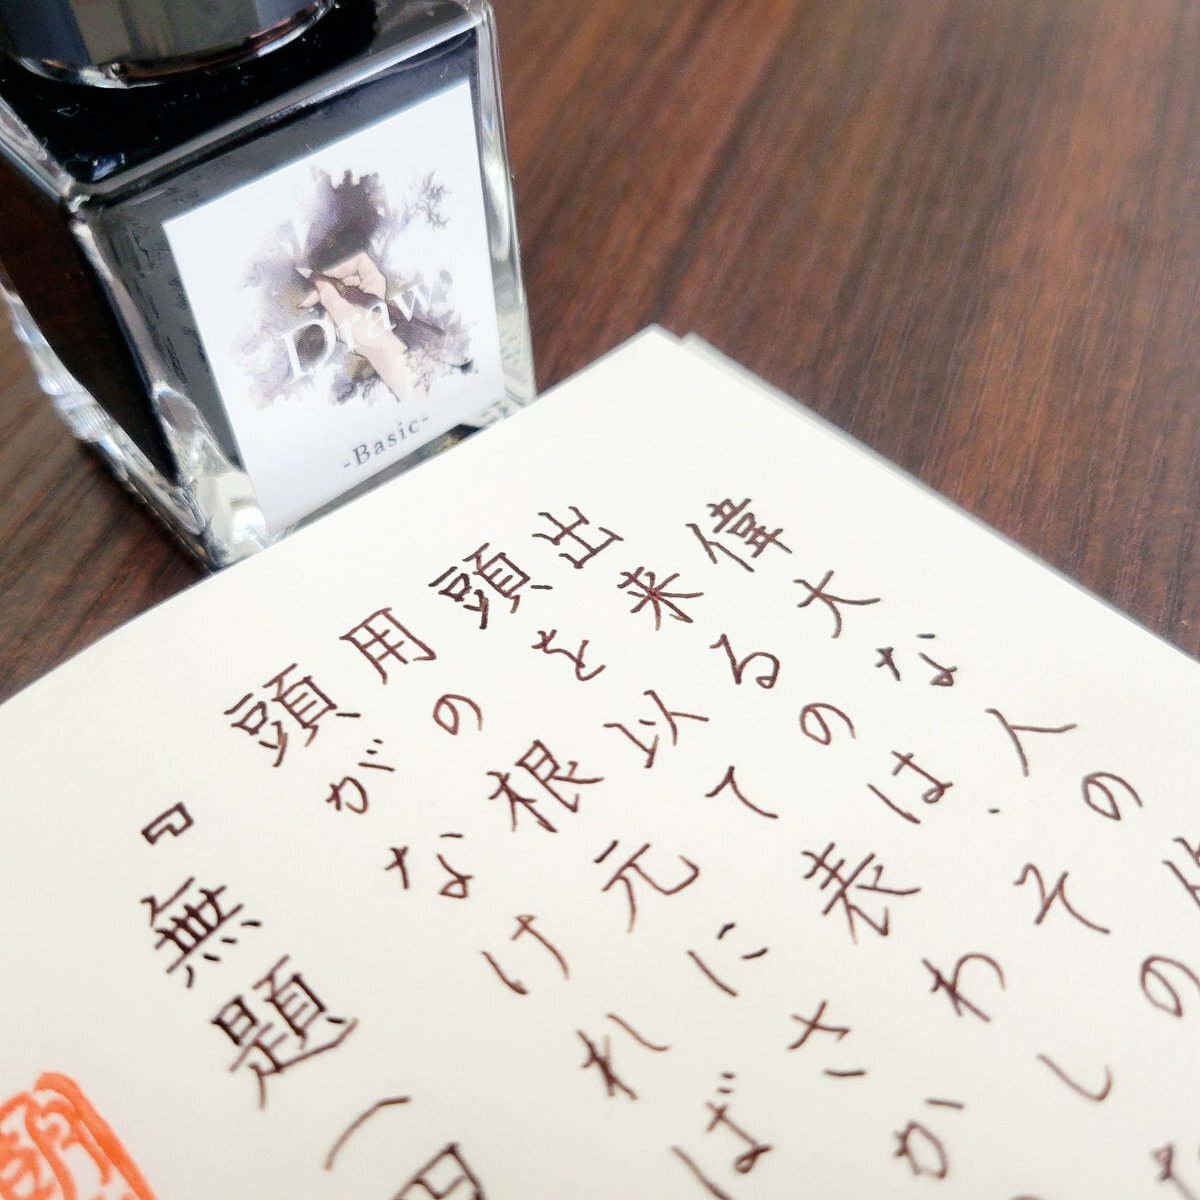 Draw
-Basic-
偉大な人の作
出来るのは、その
頭を以て表わし
用の根元にさか
頭がなければ
『無題（四